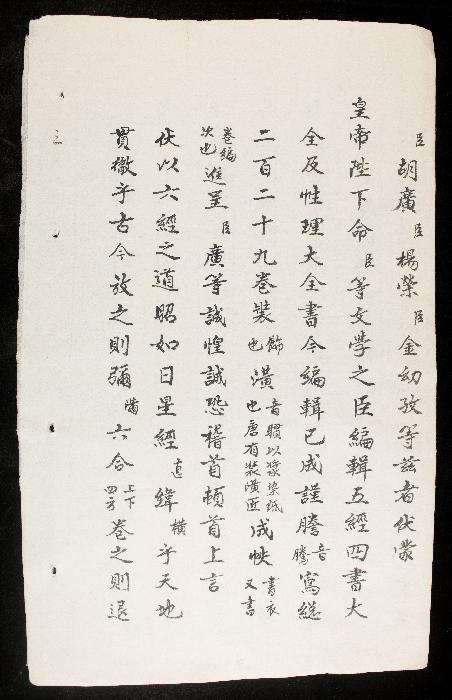 臣胡廣臣楊榮臣金幼孜等茲者伏蒙
皇帝陛下命臣等文學之臣編輯五經四書大
全及性理大全書今編輯已成謹謄音騰寫総
二百二十九卷裝飾也潢音臏以漿染紙也唐有裝潢匠成帙書衣又書
卷編次也進呈臣廣等誠惶誠恐稽首頓首上言
伏以六經之道昭如日星經直緯橫乎天地
貫徹乎古今放之則彌滿六合上下四方卷之則退
三